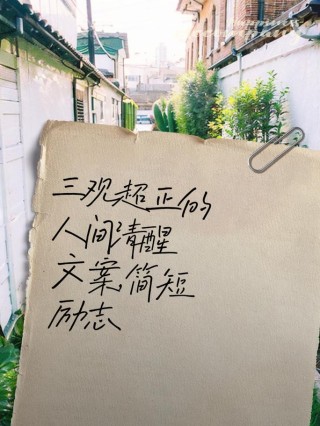 三观超正的
人间清醒
文案简短
励志